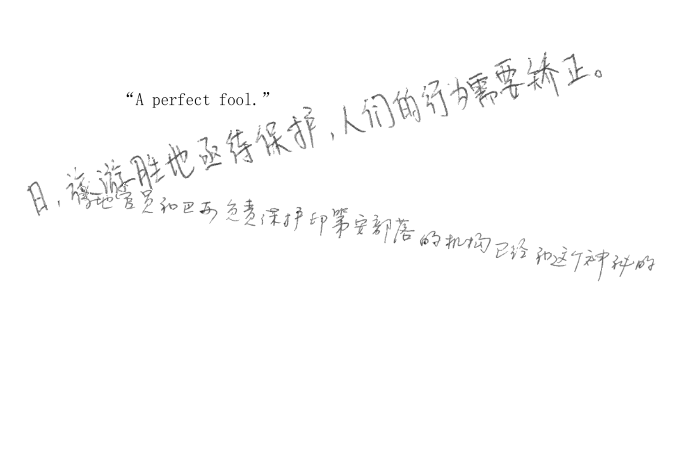 “A perfect fool.”
日,该游胜地亟待保护,人们的行为需要矫正。
地官员和巴西负责保护印第安部落的机构已经和这个神秘的